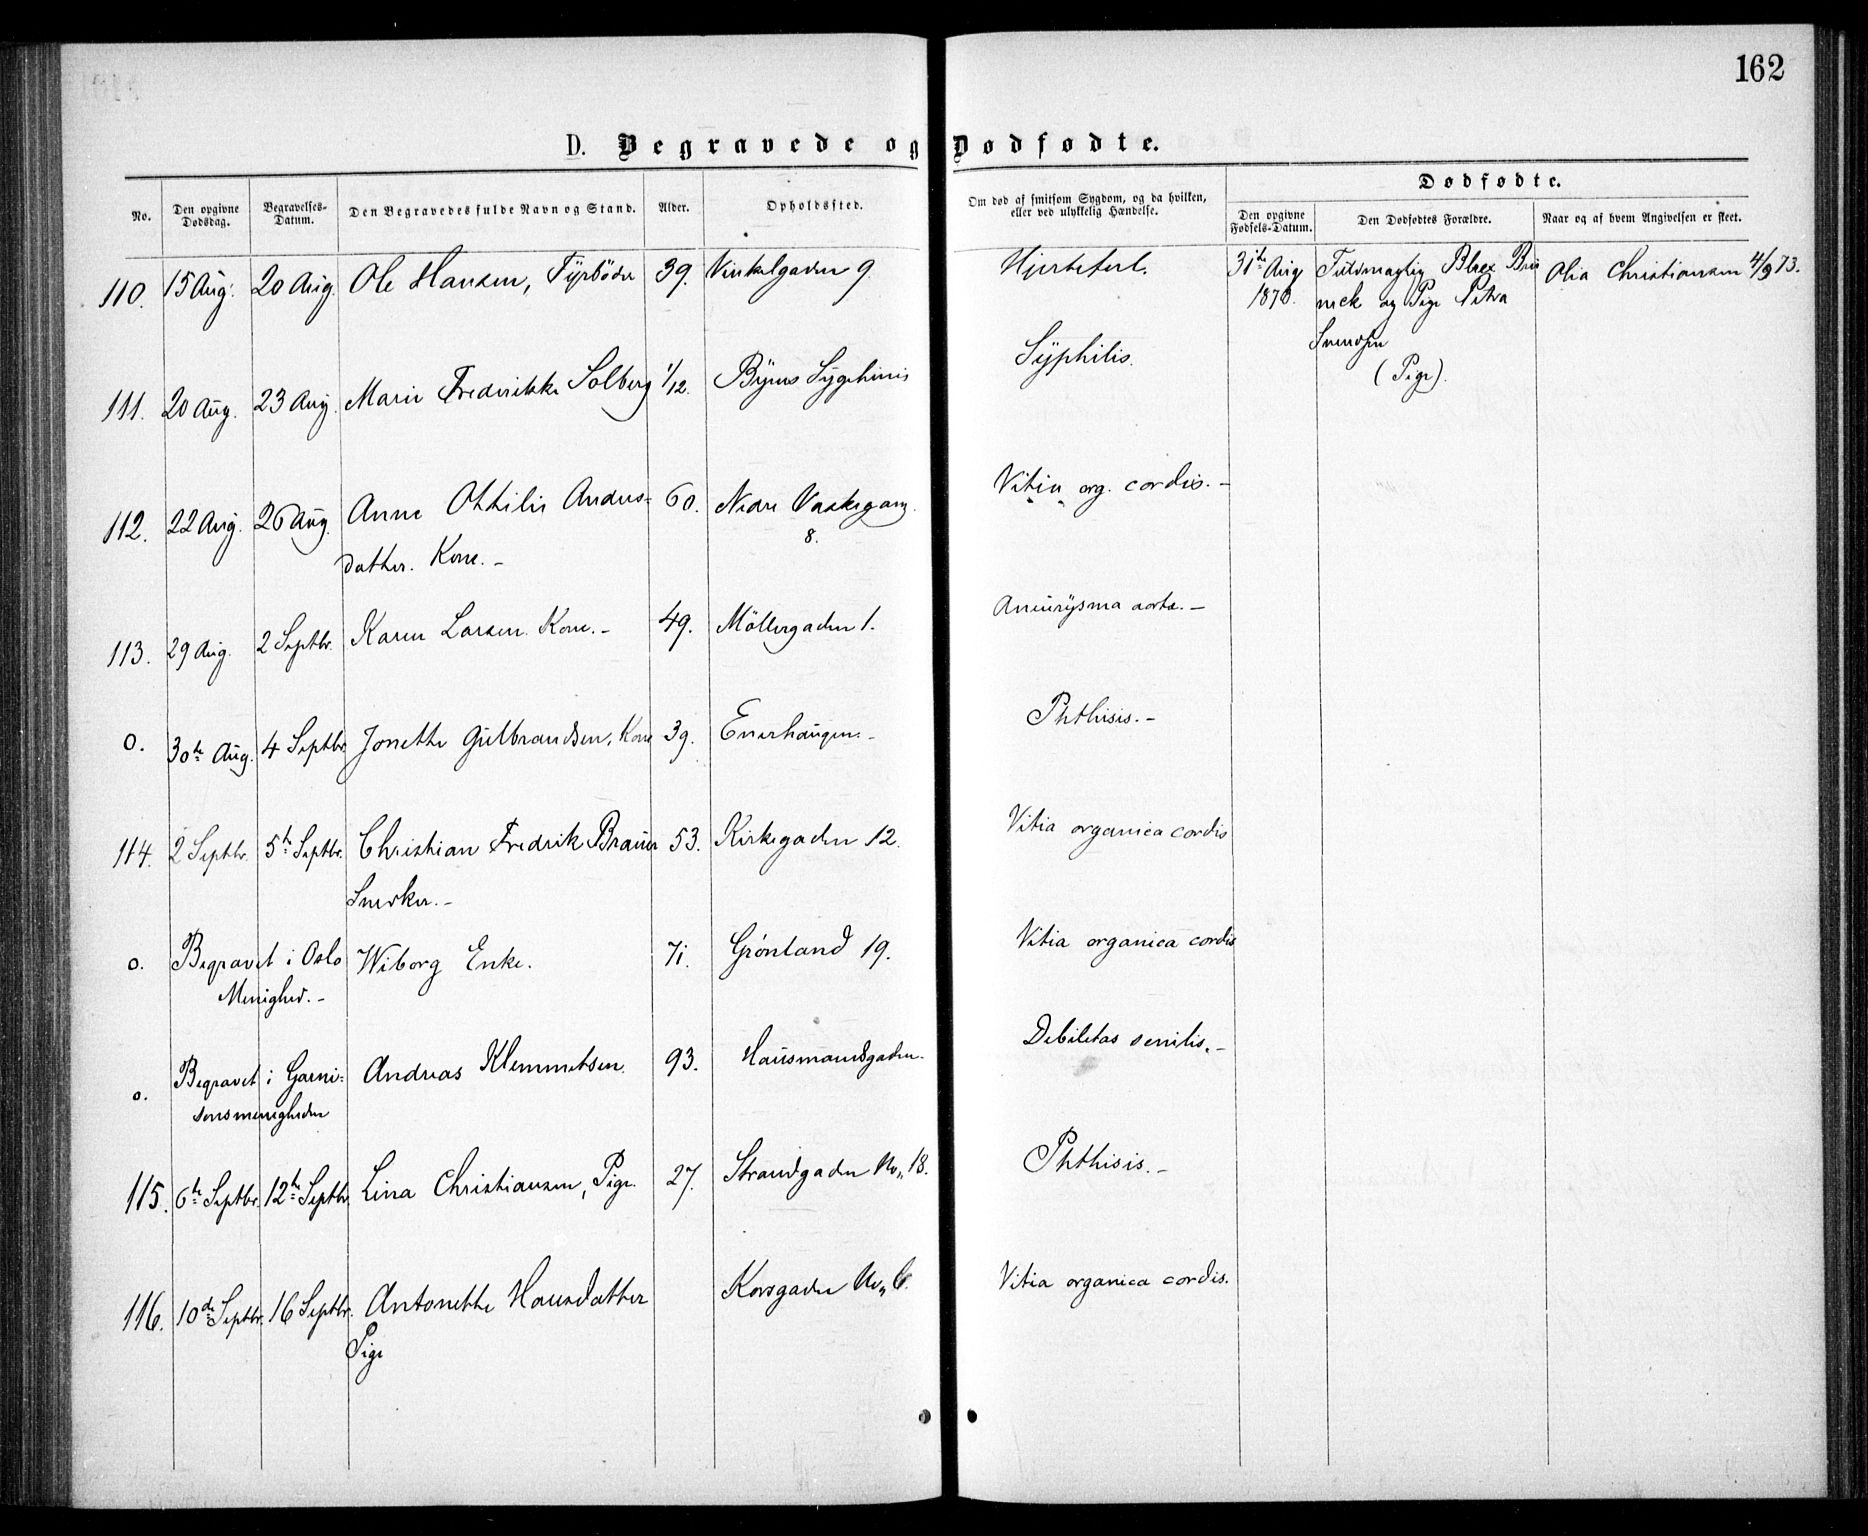 162
D. Begravede og Dødfødte.
No. Den opgivne Dødsdag. Begravelses-Datum. Den Begravedes fulde Navn og Stand. Alder. Opholdssted. Om død af smitsom Sygdom, og da hvilken, eller ved ulykkelig Hændelse. Dødfødte.
Den opgivne Fødsels-Datum. Den Dødfødtes Forældre. Naar og af hvem Angivelsen er skeet.
110. 15 Aug. 20 Aug. Ole Hansen, Fyrbøder 39. Vinkelgaden 9. Hjertefeil. 31te Aug Olia Christiansen 4/9 73.
1873. og Pige Petra
Svendsen
(Pige).
111. 20 Aug. 23 Aug. Marie Frederikke Solberg 1/12. Byens Sygehuus Syphilis.
112. 22 Aug. 26 Aug. Anne Othilie Anders- 60. Nedre Vaskegang Vitia org. cordis. -
datter. Kone. - 8.
113. 29 Aug. 2 Septbr. Karen Larsen. Kone. - 49. Möllergaden 1. Aneurysma aortæ. -
0. 30te Aug. 4 Septbr. Jonette Gulbrandsen, Kone 39. Enerhaugen. - Phthisis. -
114. 2 Septbr. 5te Septbr. Christian Fredrik Brauer 53. Kirkegaden 12. Vitia organica cordis
Snedker. -
0. Begravet i Oslo Wiborg Enke. 71. Grønland 19. Vitia organica cordis
Menighed. -
0. Begravet i Garni- Andreas Klemmetsen. 93. Hausmandsgaden. Debilitas senilis. -
sonsmenigheden
115. 6te Septbr. 12te Septbr. Lina Christiansen, Pige. 27. Strandgaden No 18. Phthisis. -
116. 10de Septbr. 16 Septbr. Antonette Hansdatter Korsgaden No 6. Vitia organica cordis.
Pige